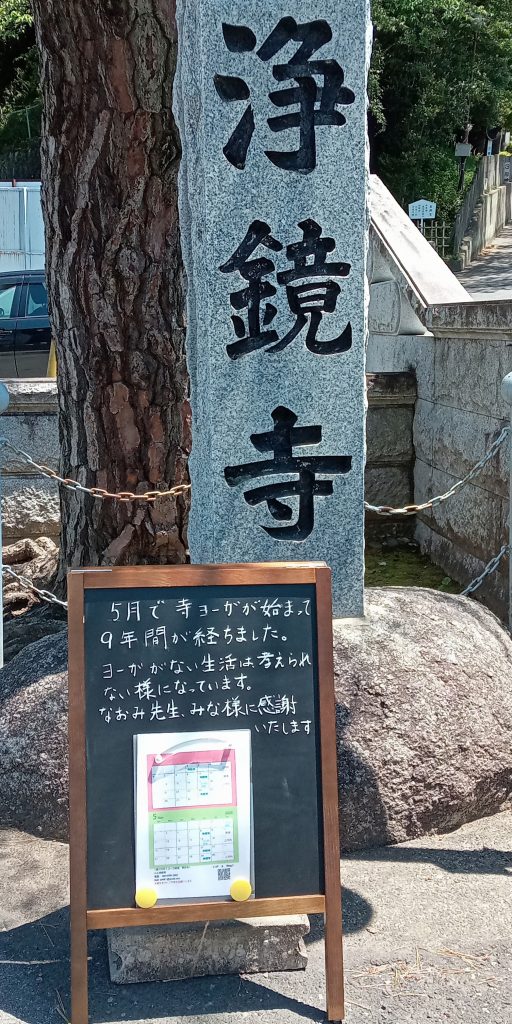 浄鏡寺
5月で寺ヨーガが始まって
9年間が経ちました。
ヨーガがない生活は考えられ
ない様になっています。
なおみ先生、みな様に感謝
いたします
5